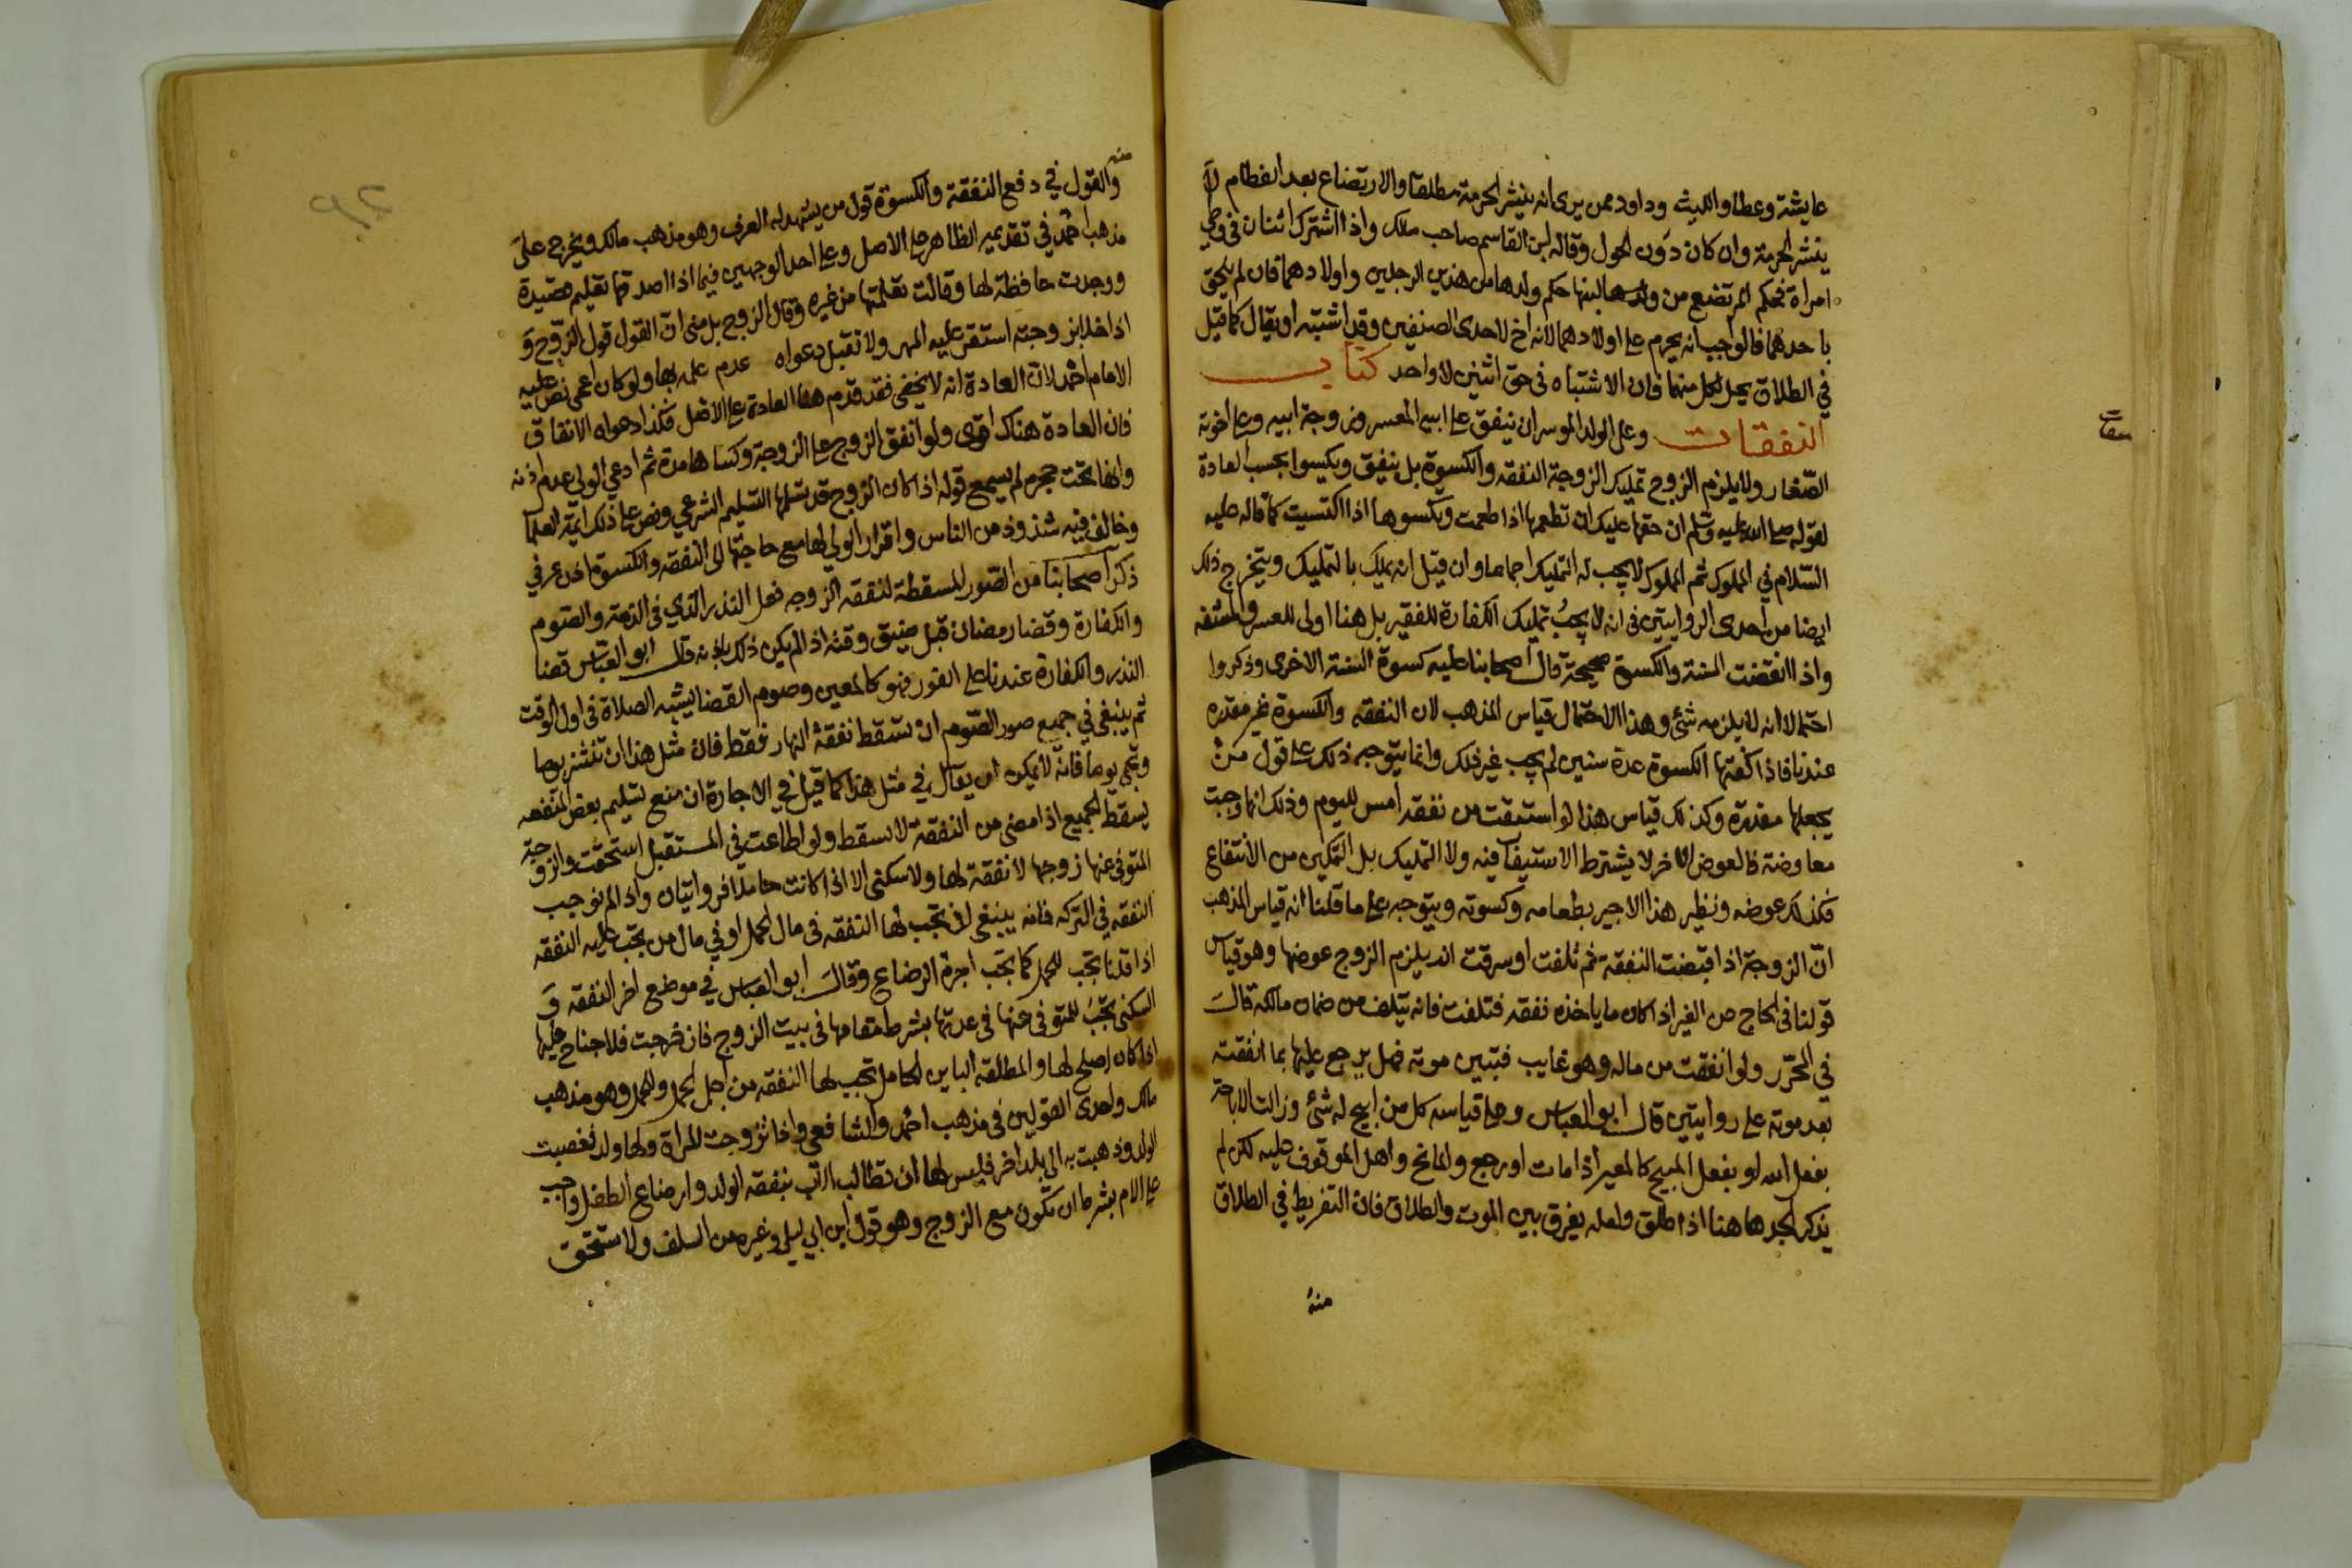 عايشة وعطا والليث وداود ممن يرى انه ينشر الحرمة مطلقا والارتضاع بعد الفطام لا
ينشر الحرمة وان كان دون الحول وقاله ابن القاسم صاحب مالك واذا اشترك اثنان في وطي
امراة فحكم المرتضع من ولدهما لبنها حكم ولدها من هذين الرجلين واولادهما فان لم يلحق
باحدهما فالواجب انه يحرم على اولادهما لانه اخ لاحدى الصنفين وقد اشتبه او يقال كما قيل
في الطلاق يحل لكل منهما فان الاشتباه في حق اثنين لا واحد كتاب
النفقات وعلى الولد الموسر ان ينفق على ابيه المعسر وزوجة ابيه وعلى اخوته
الصغار ولا يلزم الزوج تمليك الزوجة النفقه والكسوة بل ينفق ويكسوا بحسب العادة
لقوله صلى الله عليه وسلم ان حقها عليك ان تطعمها اذا طعمت وتكسوها اذا اكتسيت كما قاله عليه
السلام في المملوك ثم المملوك لا يجب له التمليك اجماعا وان قيل انه يملك بالتمليك ويتخرج ذلك
ايضا من احدى الروايتين في انه لا يجب تمليك الكفارة للفقير بل هنا اولى للعسر والمشقه
واذا انقضت السنة والكسوة صحيحة قال اصحابنا عليه كسوة السنة الاخرى وذكروا
احتمالا انه لا يلزمه شئ وهذا الاحتمال قياس المذهب لان النفقه والكسوة غير مقدره
عندنا فاذا كفتها الكسوة عدة سنين لم يجب غير ذلك وانما يتوجه ذلك على قول من
يجعلها مقدرة وكذلك قياس هذا لو استبقت من نفقه امس لليوم وذلك انها وجبت
معاوضة فالعوض الاخر لا يشترط الاستيفا فيه ولا التمليك بل التمكين من الانتفاع
فكذلك عوضه ونظير هذا الاجير بطعامه وكسوته ويتوجه على ما قلنا انه قياس المذهب
ان الزوجة اذا قبضت النفقة ثم تلفت او سرقت انه يلزم الزوج عوضها وهو قياس
قولنا في الحاج عن الغير اذا كان ما ياخذه نفقه فتلفت فانه يتلف من ضمان مالكه قال
في المحرر ولو انفقت من ماله وهو غايب فتبين موته فهل يرجع عليها بما انفقته
بعد موته على روايتين قال ابو العباس وعلى قياسه كل من ابيح له شئ وزالت الاباحة
بفعل الله او بفعل المبيح كالمعير اذا مات او رجع والمانح واهل الموقوف عليه لكن لم
يذكر الجد هاهنا اذا طلق ولعله يفرق بين الموت والطلاق فان التفريط في الطلاق
منه
منه
والقول في دفع النفقة والكسوة قول من يشهد له العرف وهو مذهب مالك ويخرج على
مذهب احمد في تقديمه الظاهر على الاصل وعلى احد الوجهين فيما اذا اصدقها تعليم قصيدة
ووجدت حافظة لها وقالت تعلمتها من غيره وقال الزوج بل مني ان القول قول الزوج و
اذا خلا بزوجته استقر عليه المهر ولا تقبل دعواه عدم علمه بها ولو كان اعمى نص عليه
الامام احمد لان العادة انه لا يخفى فقد قدم هنا العادة على الاصل فكذا دعواه الانفاق
فان العادة هناك اقوى ولو انفق الزوج على الزوجة وكساها مدة ثم ادعى الولي عدم اذنه
وانها تحت حجره لم يسمع قوله اذا كان الزوج قد تسلمها التسليم الشرعي ونص على ذلك ايمة العلما
وخالف فيه شذوذ من الناس واقرار الولي لها مع حاجتها الى النفقه والكسوة اذن عرفي
ذكر اصحابنا من الصور المسقطة لنفقه الزوجه فعل النذر الذي في الذمة والصوم
والكفارة وقضا رمضان قبل ضيق وقته اذا لم يكن ذلك باذنه قال ابو العباس قضا
النذر والكفارة عندنا على الفور فهو كالمعين وصوم القضا يشبه الصلاة في اول الوقت
ثم ينبغي في جميع صور الصوم ان تسقط نفقة النهار فقط فان مثل هذا ان تنشز يوما
وتجي يوما فانه لا يمكن ان يقال في مثل هذا كما قيل في الاجارة ان منع تسليم بعض المنفعه
يسقط الجميع اذا مضى من النفقة لا تسقط ولو اطاعت في المستقبل استحقت والزوجة
المتوفى عنها زوجها لا نفقة لها ولا سكنى الا اذا كانت حاملا فروايتان واذا لم نوجب
النفقه في التركه فانه ينبغي ان تجب لها النفقه في مال الحمل او في مال من تجب عليه النفقه
اذا قلنا تجب للحمل كما تجب اجرة الرضاع وقال ابو العباس في موضع اخر النفقه و
السكنى تجب للمتوفى عنها في عدتها بشرط مقامها في بيت الزوج فان خرجت فلا جناح عليها
اذا كان اصلح لها والمطلقة الباين الحامل تجب لها النفقه من اجل الحمل وللحمل وهو مذهب
مالك واحدى القولين في مذهب احمد والشافعي واذا تزوجت المراة ولها ولد فغصبت
الولد وذهبت به الى بلد اخر فليس لها ان تطالب الاب بنفقه الولد وارضاع الطفل واجب
على الام بشرط ان تكون مع الزوج وهو قول ابن ابي ليلى وغيره من السلف ولا تستحق